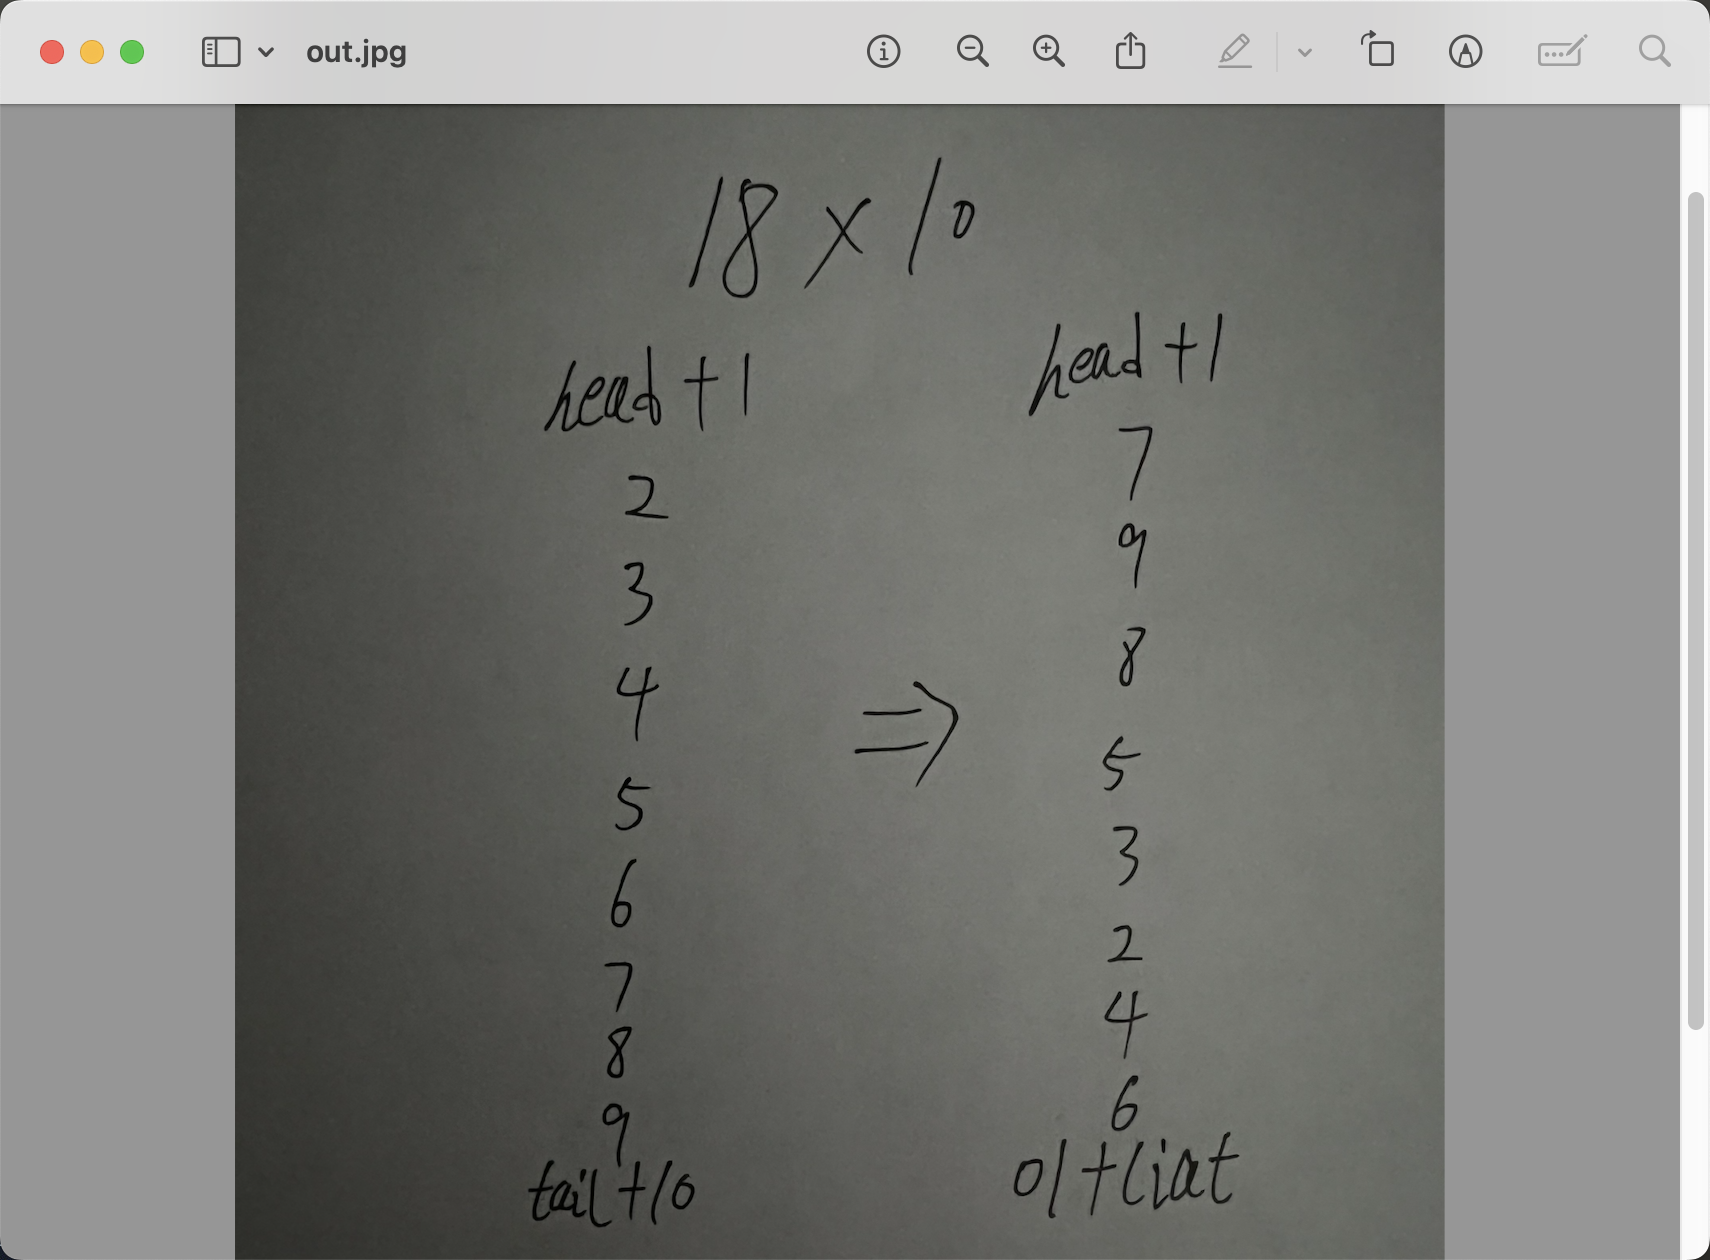 out.jpg
18 × 10
head +1
2
3
4
5
6
7
8
9
tail +10
⇒
head +1
7
9
8
5
3
2
4
6
01+liat